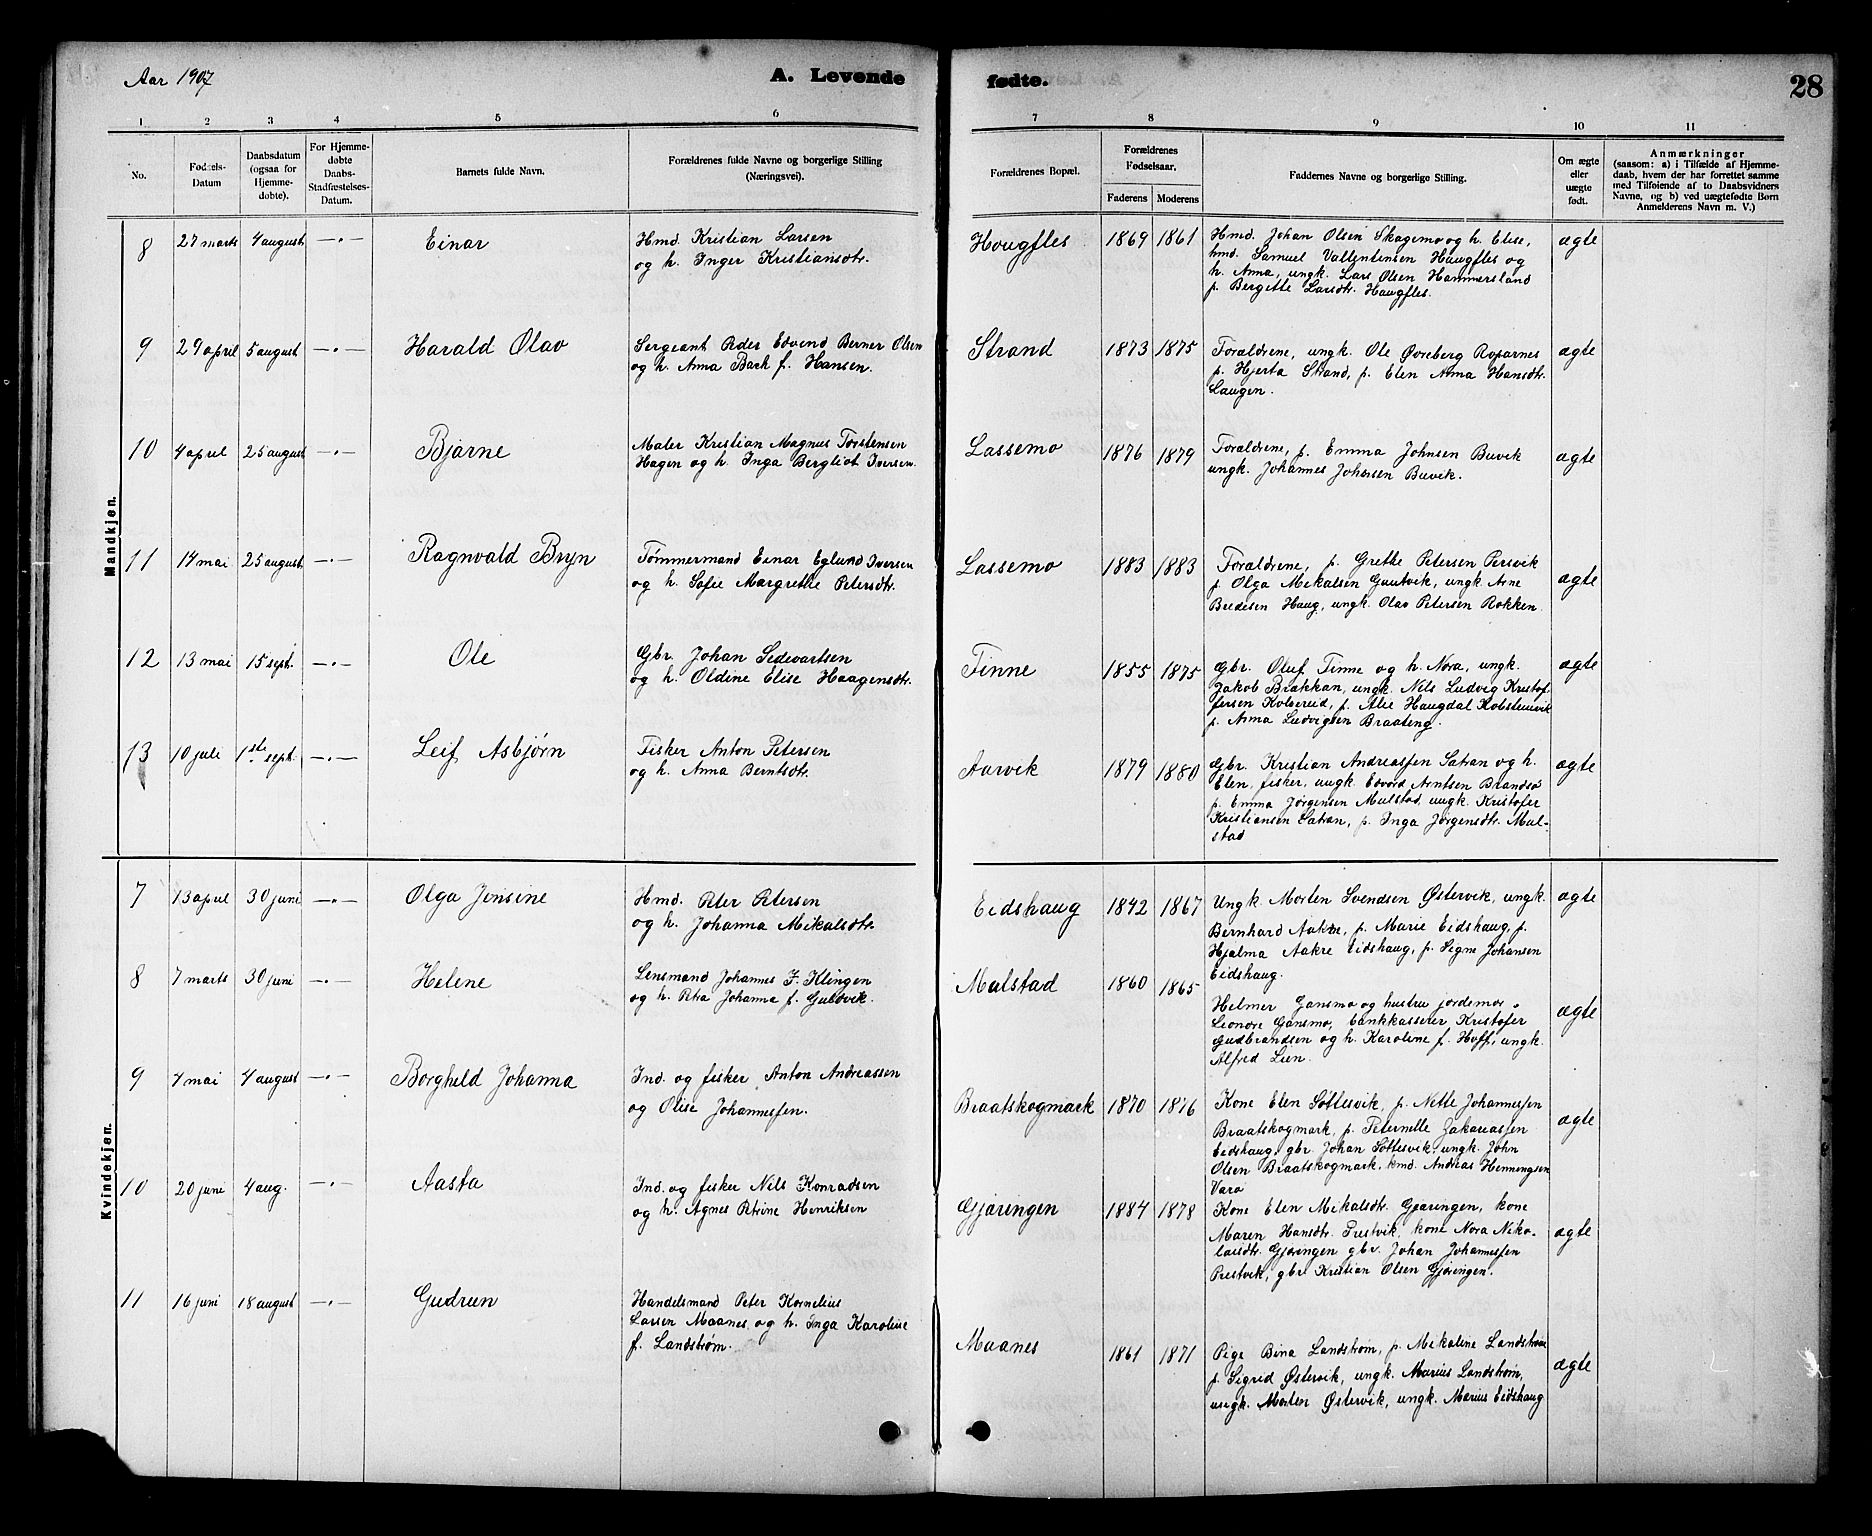 Aar 1907
A. Levende
fødte.
28
1 2 3 4 5 6 7 8 9 10 11
No.
Fødsels-
Datum
Daabsdatum
(ogsaa for
Hjemme-
døbte).
For Hjemme-
døbte
Daabs-
Stadfæstelses-
Datum.
Barnets fulde Navn.
Forældrenes fulde Navne og borgerlige Stilling
(Næringsvei).
Forældrenes Bopæl.
Forældrenes
Fødselsaar.
Faderens Moderens
Faddernes Navne og borgerlige Stilling.
Om ægte
eller
uægte
født.
Anmærkninger
(saasom: a) i Tilfælde af Hjemme-
daab, hvem der har forrettet samme
med Tilføiende af to Daabsvidners
Navne, og b) ved uægtefødte Børn
Anmelderens Navn m. V.)
Mandkjøn.
8 27 marts 4 august —·— Einar
Hmd. Kristian Larsen
og h. Inger Kristiansdtr.
Hougfles 1869 1861
Hmd. Johan Olsen Skagemo og h. Elise,
hmd. Samuel Vallentinsen Haugfles og
h. Anna, ungk. Lars Olsen Hammersland
p. Bergitte Larsdtr. Haugfles.
ægte
9 29 april 5 august —·— Harald Olav
Sergeant Peder Edvind Berner Olsen
og h. Anna Bark f. Hansen.
Strand 1873 1875
Forældrene, ungk. Ole Øvreberg
p. Hjerta Strand, p. Elen Anna Hansdtr.
Laugen.
ægte
10 4 april 25 august —·— Bjarne
Maler Kristian Magnus Torstensen
Hagen og h. Inga Bergliot Iversen.
Lassemo 1876 1879
Forældrene, p. Emma Johnsen Buvik
ungk. Johannes Johnsen Buvik.
ægte
11 14 mai 25 august —·— Ragnvald Bryn
Tømmermand Einar Eglund Iversen
og h. Sofie Margrethe Petersdtr.
Lassemo 1883 1883
Forældrene, p. Grethe Petersen Persvik
p. Olga Mikalsen Gautvik, ungk. Arne
Bredesen Haug, ungk. Olav Petersen Rokken
ægte
12 13 mai 15 sept. —·— Ole
Gbr. Johan Sedevartsen
og h. Oldine Elise Haagensdtr.
Finne 1855 1875
Gbr. Oluf Finne og h. Nora, ungk.
Jakob Brækkan, ungk. Nils Ludvig Kristof-
fersen Kolsereid, p. Alie Haugdal
p. Anna Ludvigsen Braateng.
ægte
13 10 juli 1ste sept. —·— Leif Asbjørn
Fisker Anton Petersen
og h. Anna Berntsdtr.
Aarvik 1879 1880
Gbr. Kristian Andreassen Satran og h.
Elen, fisker, ungk. Edvard Arntsen Brandsø
p. Emma Jørgensen Mulstad, ungk. Kristofer
Kristiansen Satran, p. Inga Jørgensdtr. Mul-
stad
ægte
Kvindekjøn.
7 13 april 30 juni —·— Olga Jensine
Hmd. Peter Petersen
og h. Johanna Mikalsdtr.
Eidshaug 1842 1867
Ungk. Morten Svendsen Østervik, ungk.
Bernhard Aakre, p. Marie Eidshaug, p.
Hjalma Aakre Eidshaug, p. Signe Johansen
Eidshaug.
ægte
8 7 marts 30 juni —·— Helene
Lensmand Johannes F. Klingen
og h. Petra Johanna f. Guldvik.
Mulstad 1860 1865
Helmer Gansmo og hustru jordemor
Leonore Gansmo, bankkasserer Kristofer
Gudbrandsen og h. Karoline f. Hoff, ungk.
Alfred Lien.
ægte
9 7 mai 4 august —·— Borghild Johanna
Ind. og fisker Anton Andreassen
og Olise Johannessen.
Braatskogmark 1870 1876
Kone Elen Sottesvik, p. Nette Johannessen
Braatskogmark, p. Peternelle Zakariassen
Eidshaug, gbr. Johan Sottesvik, ungk. John
Olsen Braatskogmark, kmd. Andreas Henningsen
Varø
ægte
10 20 juni 4 aug. —·— Aasta
Ind. og fisker Nils Konradsen
og h. Agnes Petrine Henriksen
Gjøringen 1884 1878
Kone Elen Mikalsdtr. Gjøringen, kone
Maren Hansdtr. Prestvik, kone Nora Niko-
laisdtr. Gjøringen gbr. Johan Johannessen
Prestvik, gbr. Kristian Olsen Gjøringen.
ægte
11 16 juni 18 august —·— Gudrun
Handelsmand Peter Kornelius
Larsen Maanes og h. Inga Karoline
f. Landstrøm.
Maanes 1861 1871
Pige Bina Landstrøm, p. Mikaline Landstrøm
p. Sigrid Østervik, ungk. Marius Landstrøm,
ungk. Morten Østervik, ungk. Marius Eidshaug
ægte